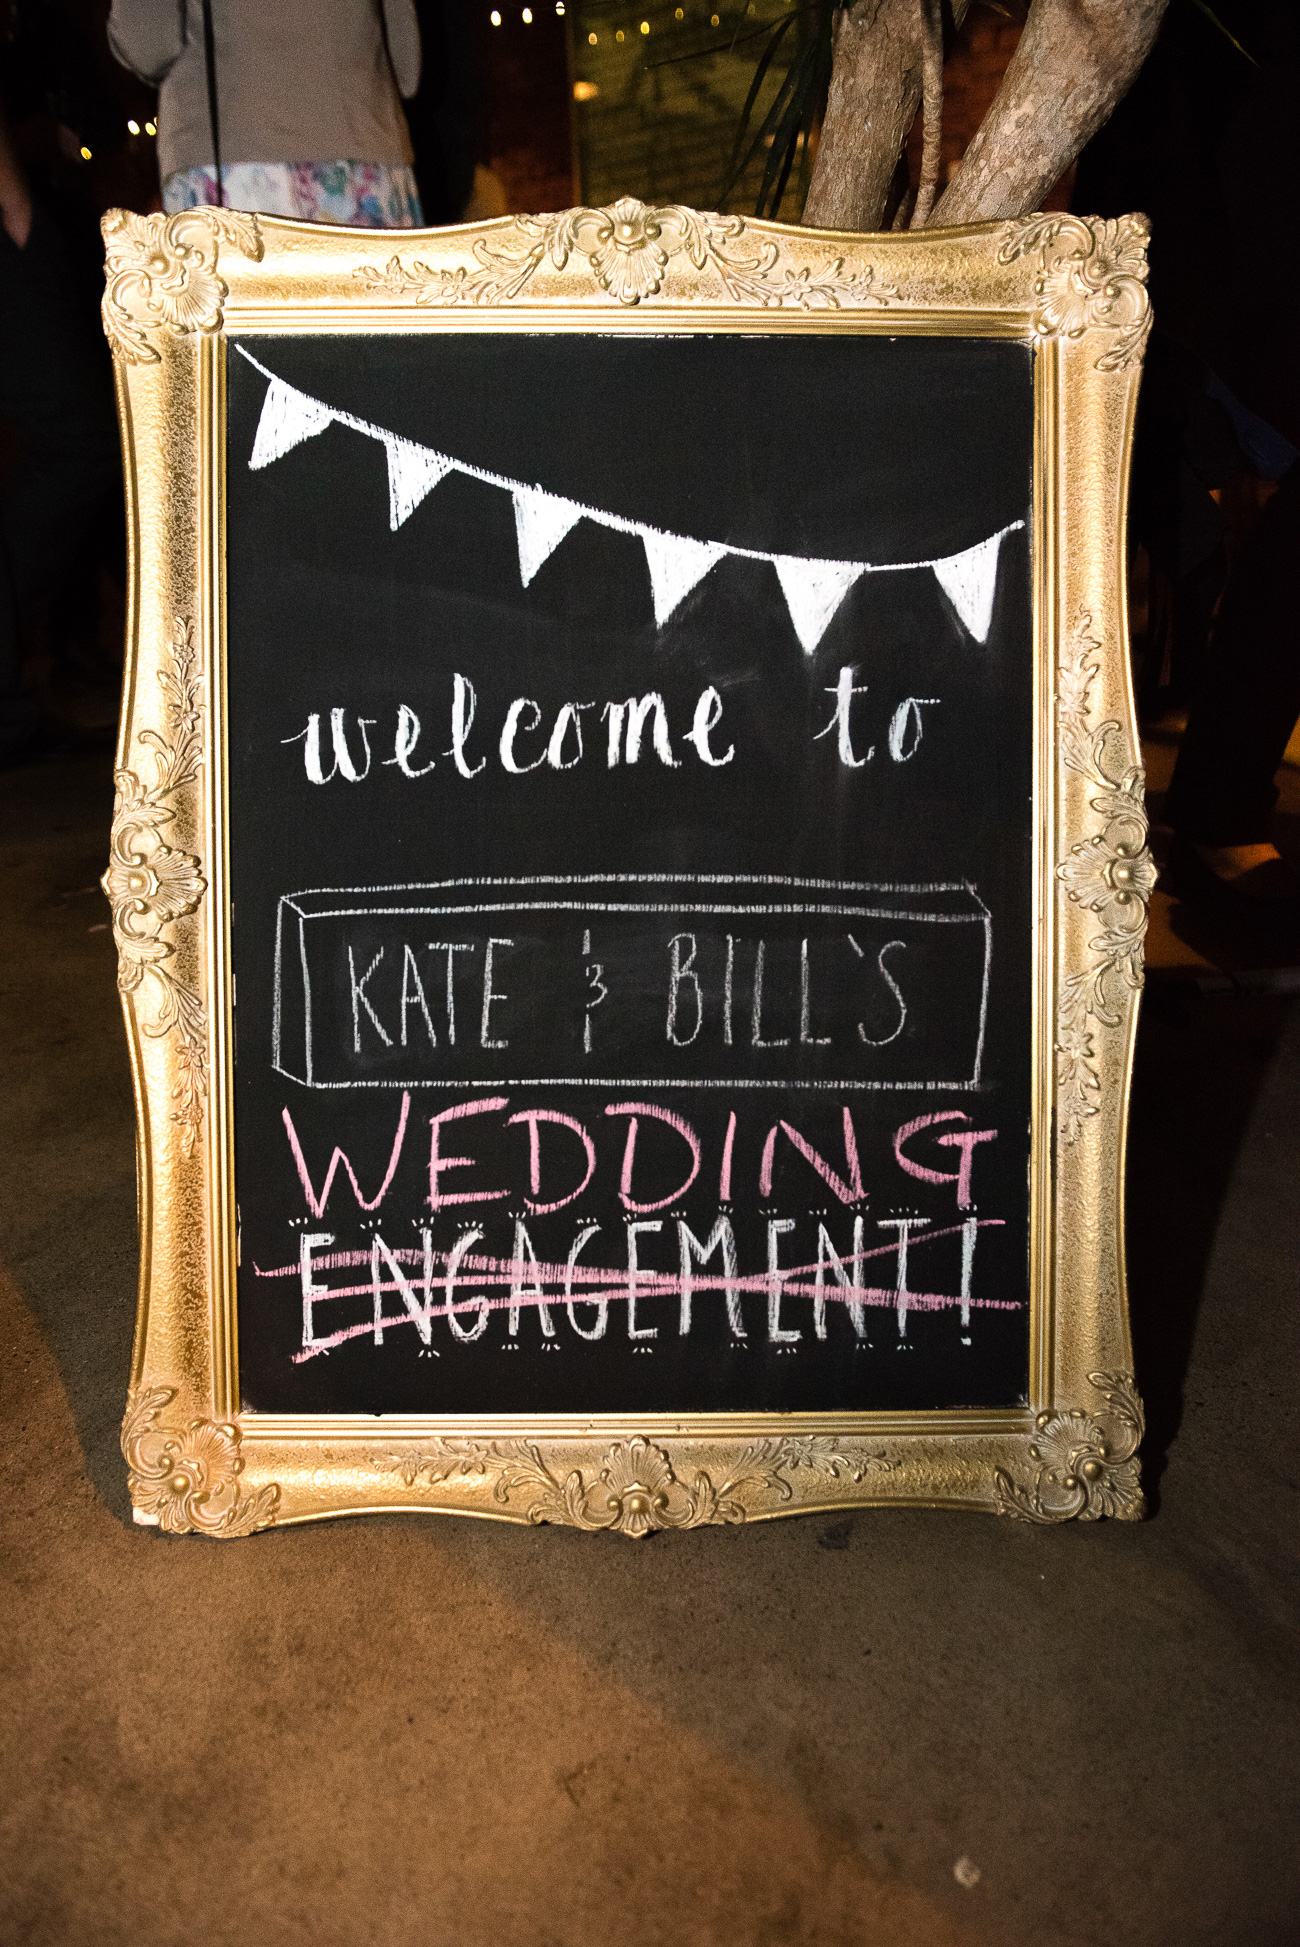 welcome to
KATE & BILL'S
WEDDING
ENGAGEMENT!